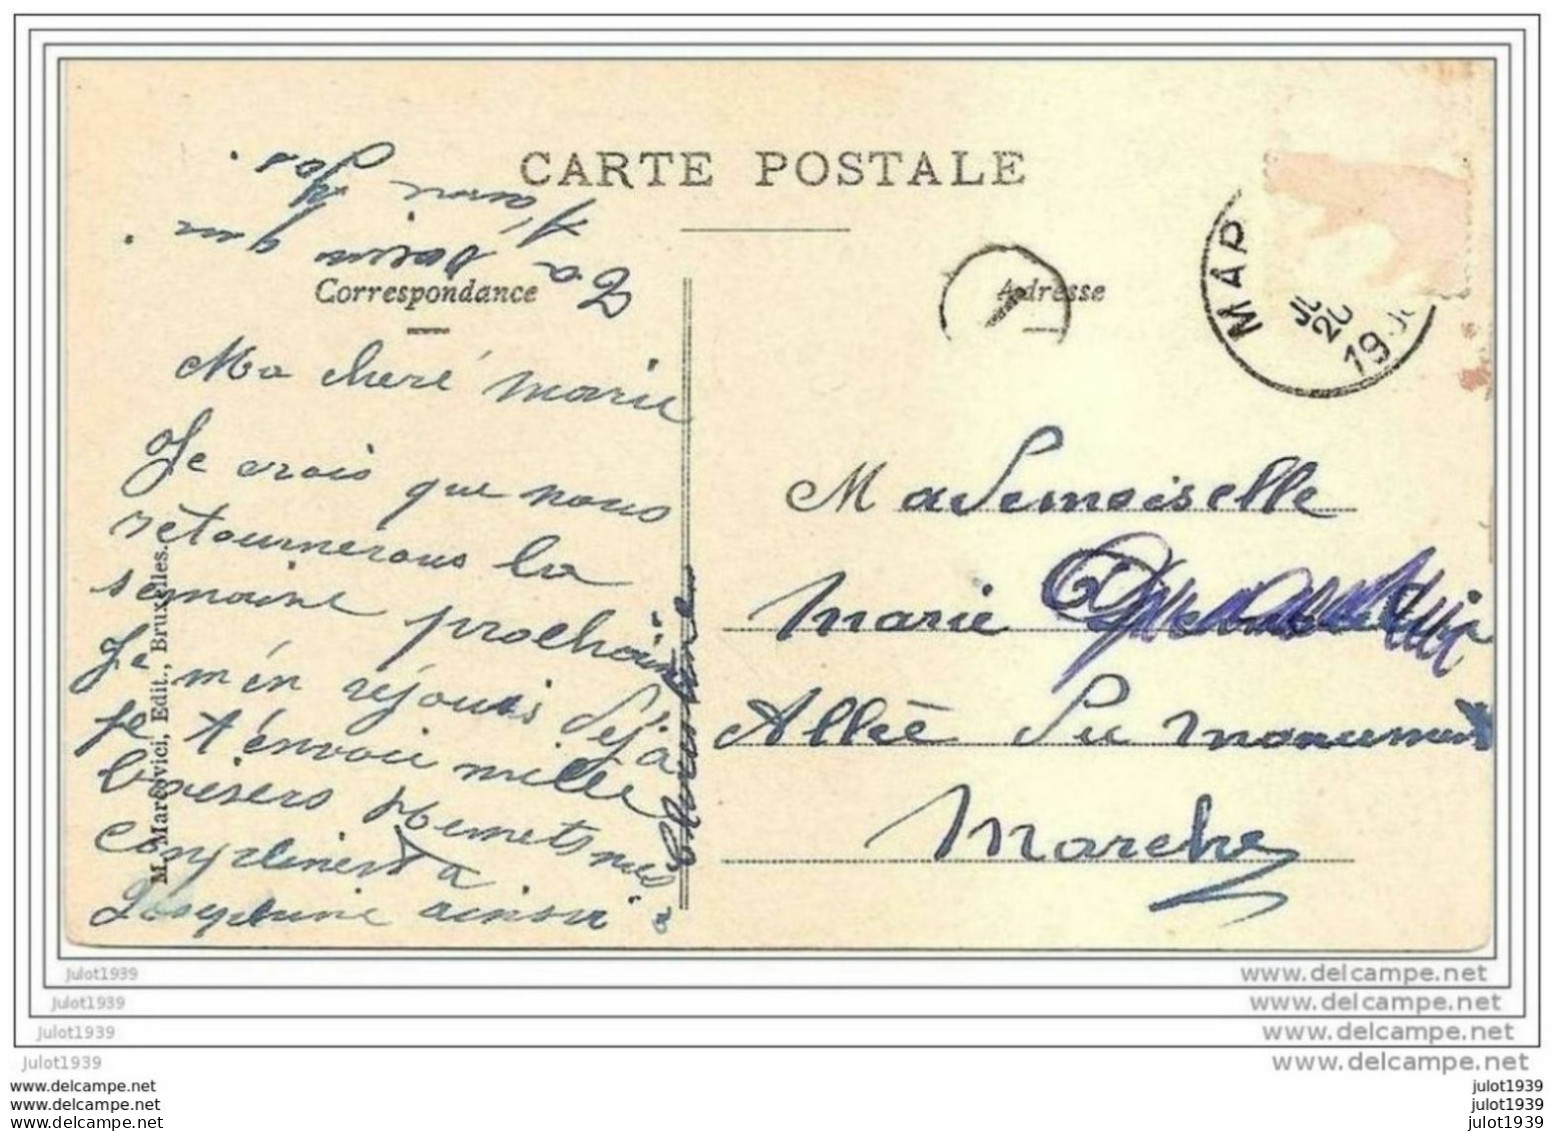 CARTE POSTALE
Correspondance
Adresse
MAR
20
19
Ma cheré marie
Je crois que nous
retournerons la
semaine prochaine
Je m'én réjouis déjà
je t'énvoie mille
baisers Remets mes
compliment a
Joséphine ainsi
qui
t'aime
Mademoiselle
Marie
Allée du monument
Marche
M. Marcovici, Edit., Bruxelles.
Julot1939
Julot1939
Julot1939
Julot1939
www.delcampe.net
www.delcampe.net
www.delcampe.net
www.delcampe.net
www.delcampe.net
www.delcampe.net
www.delcampe.net
julot1939
julot1939
julot1939